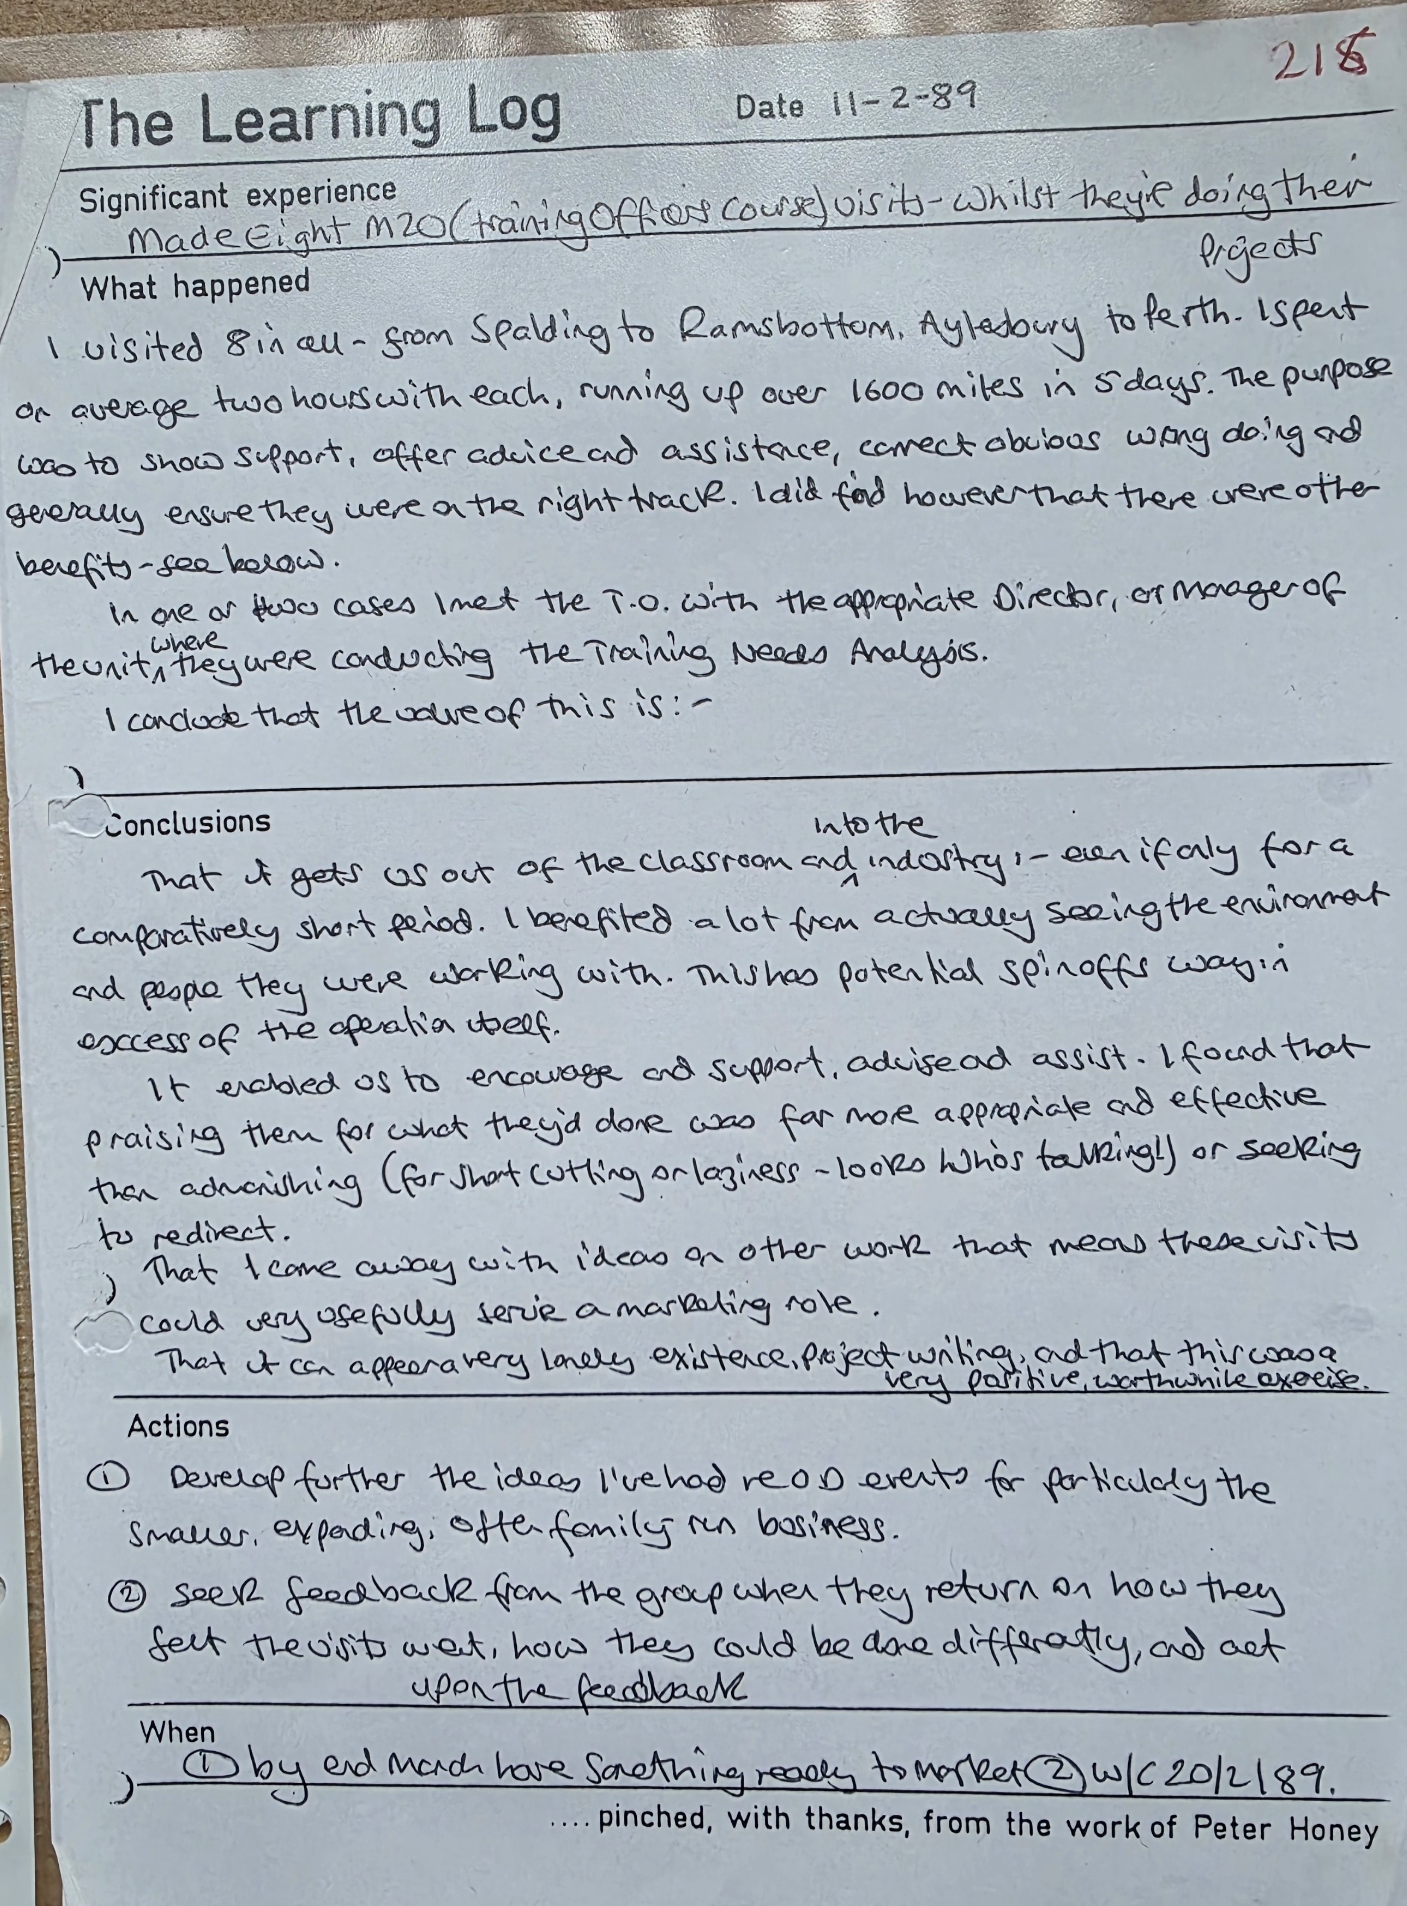 218
The Learning Log
Date 11-2-89
Significant experience
Made Eight M20 (training Officers Course) visits - whilst they're doing their
Projects
What happened
I visited 8 in all - from Spalding to Ramsbottom, Aylesbury to Perth. I spent
on average two hours with each, running up over 1600 miles in 5 days. The purpose
was to show support, offer advice and assistance, correct obvious wrong doing and
generally ensure they were on the right track. I did find however that there were other
benefits - see below.
In one or two cases I met the T.O. with the appropriate Director, or Manager of
the unit, where they were conducting the Training Needs Analysis.
I conclude that the value of this is :-
Conclusions
That it gets us out of the classroom and into the industry, - even if only for a
comparatively short period. I benefited a lot from actually seeing the environment
and people they were working with. This has potential spinoffs way in
excess of the operation itself.
It enabled us to encourage and support, advise and assist. I found that
praising them for what they'd done was far more appropriate and effective
than admonishing (for short cutting or laziness - looks who's talking!) or seeking
to redirect.
That I came away with ideas on other work that means these visits
could very usefully serve a marketing role.
That it can appear a very lonely existence, project writing, and that this was a
very positive, worthwhile exercise.
Actions
① Develop further the ideas I've had re O D events for particularly the
smaller, expanding, often family run business.
② Seek feedback from the group when they return on how they
felt the visits went, how they could be done differently, and act
upon the feedback
When
① by end March have something ready to market ② W/C 20/2/89.
.... pinched, with thanks, from the work of Peter Honey